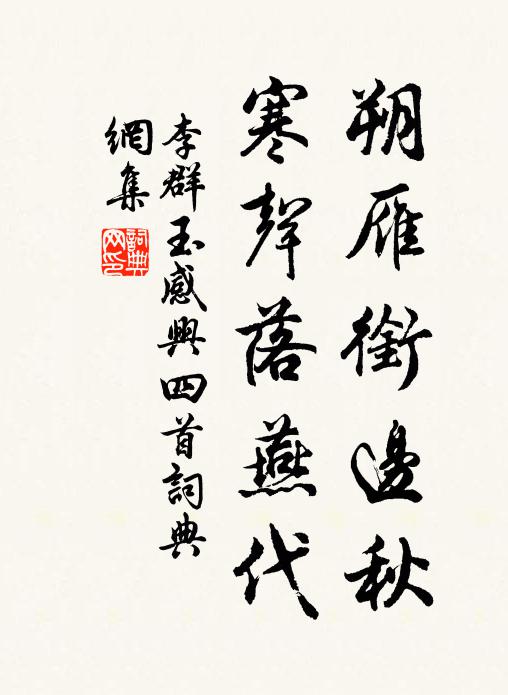 朔雁銜邊秋
寒聲落燕代
李群玉感興四首詞典
網集
詞典網印